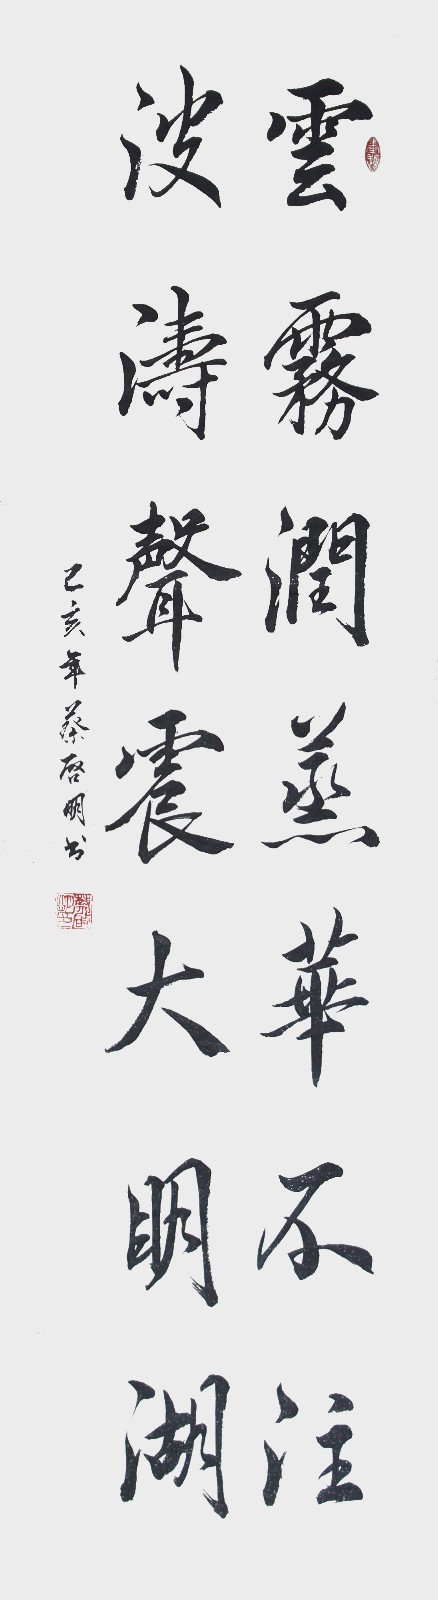 雲霧潤蒸華不注
波濤聲震大明湖
己亥年蔡啓明书